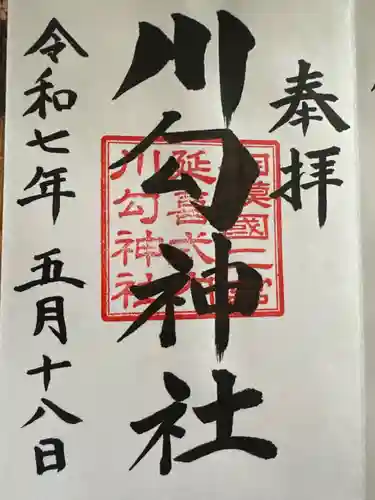 奉拝
川勾神社
相模國二宮
延喜式内
川勾神社
令和七年五月十八日